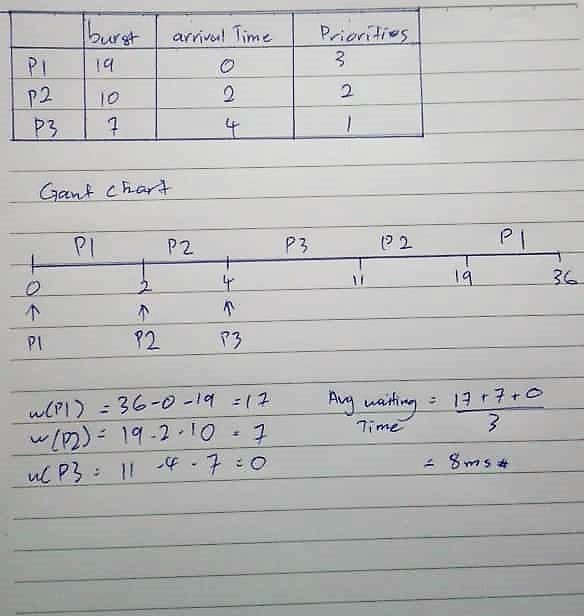 burst arrival Time Priorities
P1 19 0 3
P2 10 2 2
P3 7 4 1
Gant chart
P1 P2 P3 P2 P1
0 2 4 11 19 36
↑ ↑ ↑
P1 P2 P3
w(P1) = 36-0-19 = 17
w(P2) = 19-2-10 = 7
w(P3 = 11 -4 - 7 = 0
Avg waiting Time = 17+7+0
3
= 8ms #